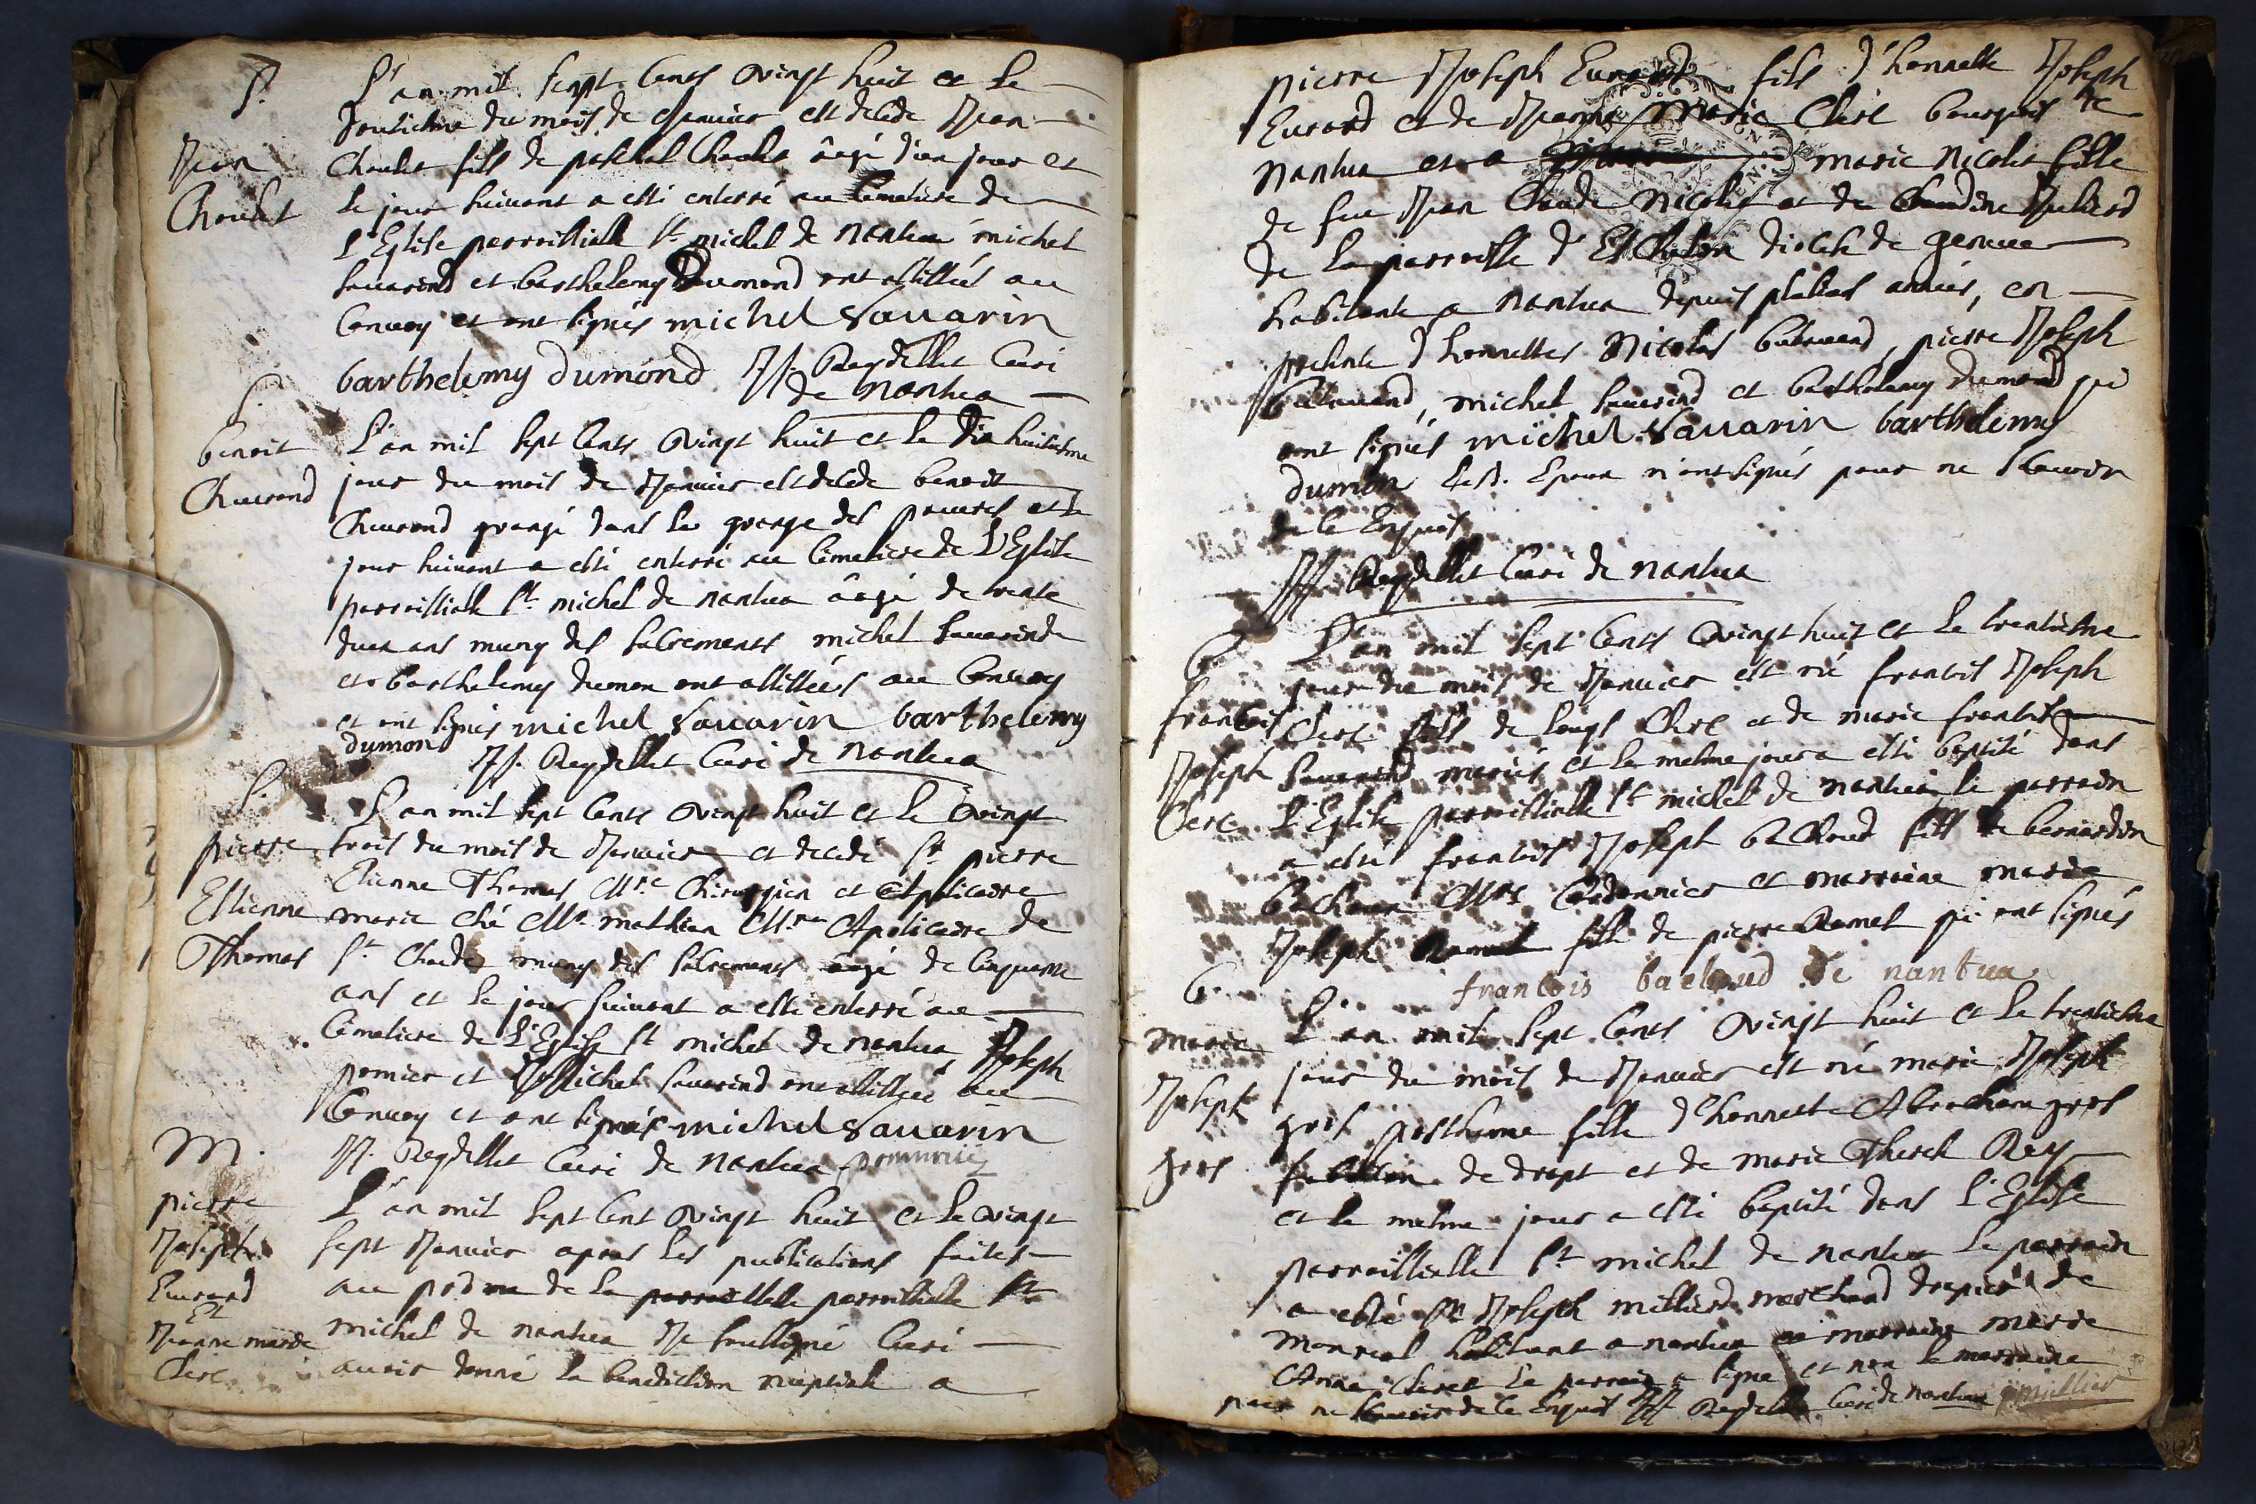 S. L'an mil sept cents vingt huit et le
douzieme du mois de Janvier est decede Jean
Jean
Choulet
Choulet fils de paschal Choulet âagé d'un jour et
le jour suivant a esté enterré au Cimetiere de
L'Eglise parroissialle St michel de nantua michel
Sauarind et barthelemy Dumond ont assistés au
Convoy et ont signés michel Sauarin
barthelemy dumond JJ. Reydellet Curé
de nantua
S.
benoit
Cheurand
L'an mil sept cents vingt huit et le dix huitiesme
jour du mois de Janvier est decede benoit
Cheurand grangé dans la grange des pauvres et le
jour suivant a esté enterré au Cimetiere de L'Eglise
parroissialle St michel de nantua âagé de trente
deux ans muny des sacrements michel Sauarind
et barthelemy dumon ont assistées au Convoy
et ont signés michel Sauarin barthelemy
dumon
JJ. Reydellet Curé de nantua
S.
pierre
Estienne
Thomas
L'an mil sept cents vingt huit et le vingt
trois du mois de Janvier et decedé Sr pierre
Etienne Thomas Mre Chirurgien et Apoticaire
marie ché Mr mathieu Mre Apoticaire de
St Claude muny des sacrements aagé de cinquante
ans et le jour suivant a esté enterré au
Cimetiere de L'Eglise St michel de nantua Joseph
pernier et Michel Sauarind ont assistés au
Convoy et ont signés michel Sauarin
JJ. Reydellet Curé de nantua
M.
pierre
Joseph
Eurard
Et
Jeanne marie
Clerc
L'an mil sept cent vingt huit et le vingt
sept Janvier apres les publications faites
au prône de la parroissialle St
michel de nantua Je soussigné Curé
avoir donné la benediction nuptiale a
pierre Joseph Eurard fils d'honnette Joseph
Eurard et de Jeanne Marie Clerc bourgeois de
Nantua et a marie Nicolet fille
de feu Jean Claude Nicolet et de Claudine
de la parroisse d'Eschalon diocese de geneue
habitante a nantua depuis plusieurs années, en
presence d'honnettes Nicolas , pierre Joseph
, michel Sauarind et barthelemy dumond qui
ont signés michel Sauarin barthelemy
dumon Lesd. Epoux n'ont signés pour ne scavoir
de ce Enquis
JJ Reydellet Curé de nantua
B.
francois
Joseph
Clerc
L'an mil sept cents vingt huit et le trentiesme
jour du mois de Janvier est né francois Joseph
Clerc fils de Louys Clerc et de marie francoise
Sauarind mariés et le mesme jour a esté baptisé dans
L'Eglise parroissialle St michel de nantua le parrain
a esté francois Joseph bachoud fils de bernardin
bachoud Mre Cordonnier et marraine marie
Joseph Ramel fille de pierre Ramel qui ont signés
francois bachoud de nantua
B.
marie
Joseph
gros
L'an mil sept cents vingt huit et le trentiesme
jour du mois de Janvier est né marie Joseph
gros posthume fille d'honnette Abraham gros
de drapt et de marie Therese Rey
et le mesme jour a esté baptisé dans L'Eglise
parroissialle St michel de nantua le parrain
a esté Sr Joseph milliard marchand drapier de
habitant a nantua et marraine marie
Anne Cleret le parrain a signé et non la marraine
pour ne scavoir de ce Enquis JJ Reydellet Curé de nantua